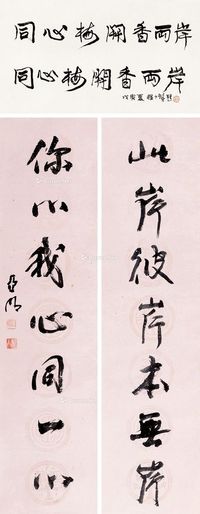 同心梅開香兩岸
同心梅開香兩岸
此岸彼岸本無岸
你心我心同一心
亞明